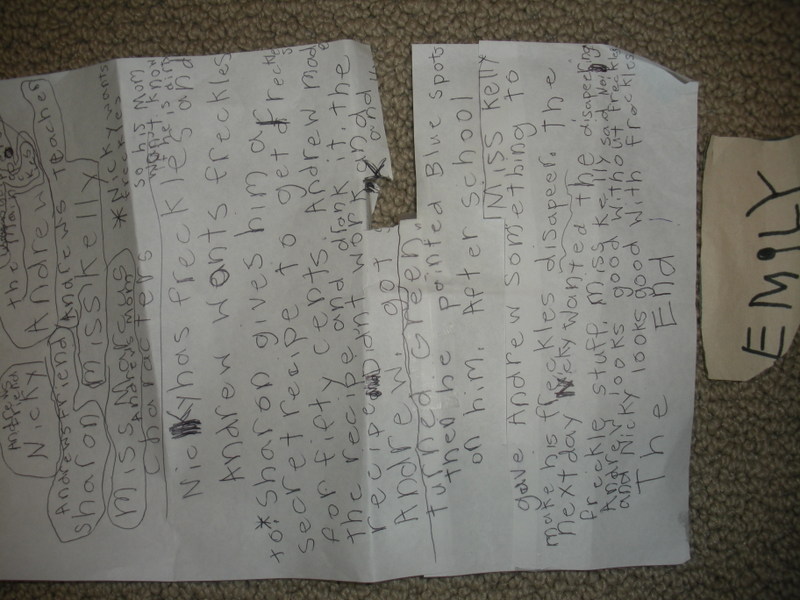 the
Andrew
Nicky
Andrews friend
Andrews Teacher
sharon
miss kelly
miss Mars
Andrews mom
* Nicky wants
freckles
so his mom
wont know
if he is dirty
characters
Nicky has freckles and
Andrew wants freckles
to * Sharon gives him a
secret recipe to get freckles
for fifty cents. Andrew made
the recipe and drank it. the
recipe didnt work and
Andrew. got and
turned Green.
then he painted Blue spots
on him. After school
Miss kelly
gave Andrew something to
make his freckles disapeer. The
next day Nicky wanted the disapeering
freckle stuff. miss kelly said No
Andrew looks good without freckles
and Nicky looks good with freckles
The End!
EMILY